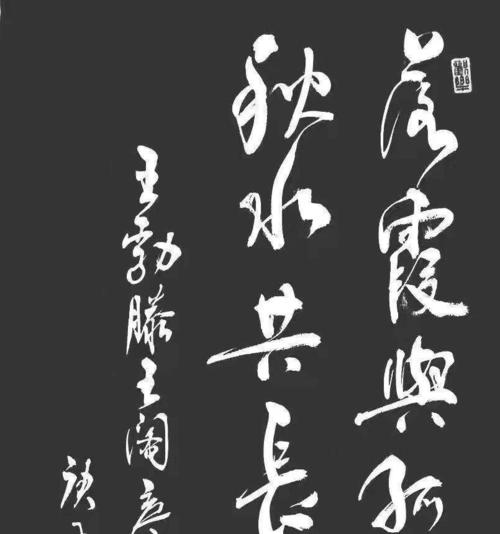 落霞與孤
秋水共長
王勃滕王阁序